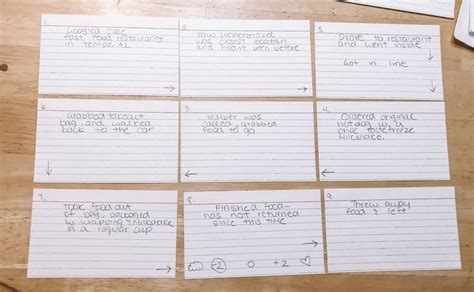 1.
Googled close
fast food restaurants
in Tempe, AZ
2.
Saw Wienerschnitzel
was closest location
and hadn't been before
3.
Drove to restaurant
and went inside
Got in line
6.
Grabbed takeout
bag, and walked
back to the car
5.
Number was
called, grabbed
food to go
4.
Ordered original
hotdog w/ a
Milkshake.
7.
Took food out
of bag, packaged
w/ wrapping & Milkshake
in a regular cup
8.
Finished food-
has not returned
since this time
-2 0 +2
9.
Threw away
food & left